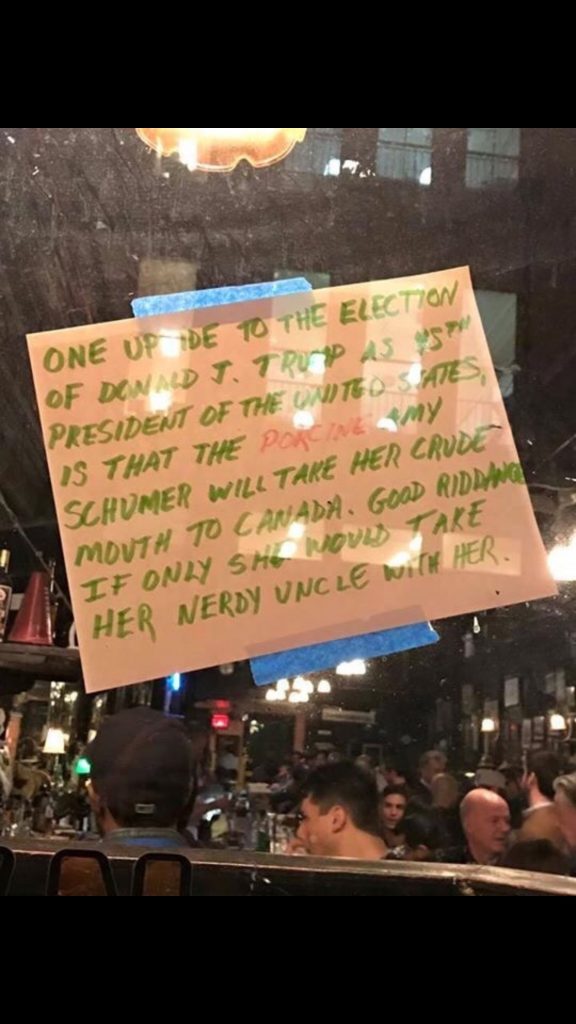 ONE UPSIDE TO THE ELECTION
OF DONALD J. TRUMP AS 45TH
PRESIDENT OF THE UNITED STATES,
IS THAT THE PORCINE AMY
SCHUMER WILL TAKE HER CRUDE
MOUTH TO CANADA. GOOD RIDDANCE
IF ONLY SHE WOULD TAKE
HER NERDY UNCLE WITH HER.